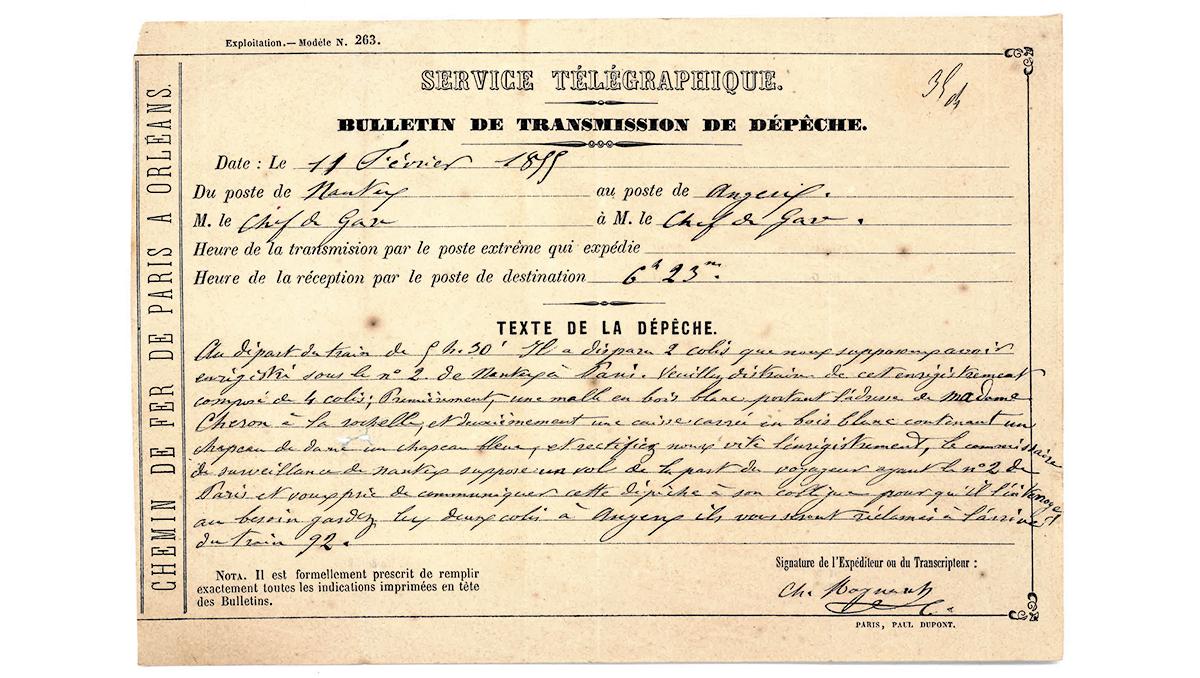 Exploitation.—Modèle N. 263.
CHEMIN DE FER DE PARIS A ORLÉANS.
SERVICE TÉLÉGRAPHIQUE.
BULLETIN DE TRANSMISSION DE DÉPÊCHE.
Date : Le 11 Février 1855
Du poste de Nantes au poste de Angers.
M. le Chef de Gare à M. le Chef de Gare.
Heure de la transmision par le poste extrême qui expédie
Heure de la réception par le poste de destination 6h 23m.
TEXTE DE LA DÉPÊCHE.
Au départ du train de 5 h. 30' Il a disparu 2 colis que nous supposons avoir
enrigistré sous le n° 2 de Nantes à Paris. Veuillez distraire de cet enregistrement
composé de 4 colis; Premièrement, une malle en bois blanc portant l'adresse de madame
Cheron à La rochelle, et deuxièmement une caisse carrée en bois blanc contenant un
chapeau de dame un chapeau bleu, et rectifiez nous vite l'enrigistrement, le commissaire
de surveillance de nantes suppose un vol de la part du voyageur ayant le n° 2 de
Paris et vous prie de communiquer cette dépêche à son collègue pour qu'il
au besoin gardez les deux colis à Angers ils vous seront réclamés à l'arrivée
du train 92.
NOTA. Il est formellement prescrit de remplir
exactement toutes les indications imprimées en tête
des Bulletins.
Signature de l'Expéditeur ou du Transcripteur :
Ch.
PARIS, PAUL DUPONT.